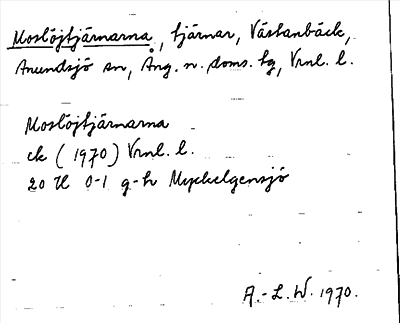 Moslöjtjärnarna, tjärnar, Västanbäck,
Anundsjö sn, Ång. n. doms. tg, Vrnl. l.
Moslöjtjärnarna
ek (1970) Vrnl. l.
20 H 0-1 g-h Myckelgensjö
A.-L. W. 1970.